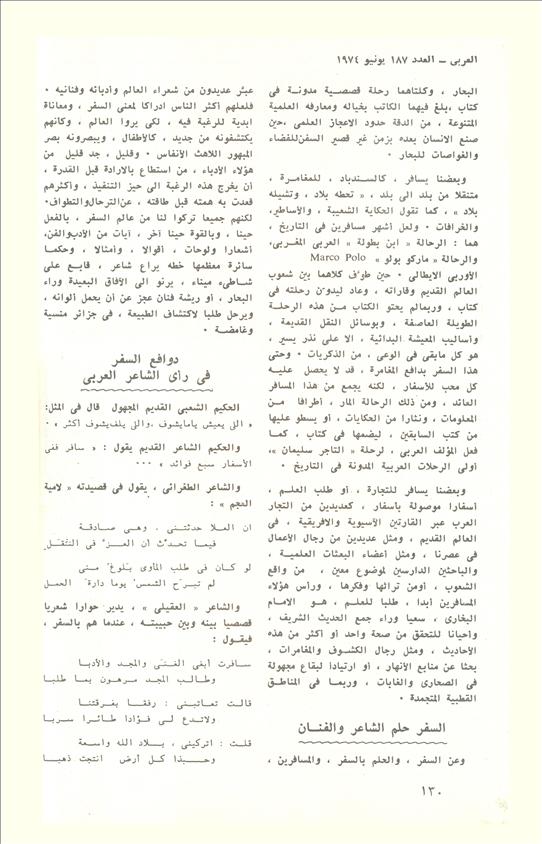 العربى ـ العدد ١٨٧ يونيو ١٩٧٤
البحار ، وكلتاهما رحلة قصصية مدونة فى
كتاب ، بلغ فيهما الكاتب بخياله ومعارفه العلمية
المتنوعة ، من الدقة حدود الاعجاز العلمى ، حين
صنع الانسان بعده بزمن غير قصير السفن للفضاء
والغواصات للبحار ٠
وبعضنا يسافر ، كالسندباد ، للمغامرة ،
متنقلا من بلد الى بلد ، « تحطه بلاد ، وتشيله
بلاد » ، كما تقول الحكاية الشعبية ، والأساطير،
والخرافات ٠ ولعل أشهر مسافرين فى التاريخ ،
هما : الرحالة « ابن بطوطة » العربى المغربى،
والرحالة « ماركو بولو » Marco Polo
الأوربى الايطالى ٠ حين طوّف كلاهما بين شعوب
العالم القديم وقاراته ، وعاد ليدوّن رحلته فى
كتاب ، وربما لم يحتو الكتاب من هذه الرحلة
الطويلة العاصفة ، وبوسائل النقل القديمة ،
وأساليب المعيشة البدائية ، الا على نذر يسير ،
هو كل مابقى فى الوعى ، من الذكريات ٠ وحتى
هذا السفر بدافع المغامرة ، قد لا يحصل عليه
كل محب للأسفار ، لكنه يجمع من هذا المسافر
العائد ، ومن ذلك الرحالة المار ، أطرافا من
المعلومات ، ونثارا من الحكايات ، أو يسطو عليها
من كتب السابقين ، ليضمها فى كتاب ، كما
فعل المؤلف العربى ، لرحلة « التاجر سليمان »،
أولى الرحلات العربية المدونة فى التاريخ ٠
وبعضنا يسافر للتجارة ، أو طلب العلم ،
أسفارا موصولة بأسفار ، كعديدين من التجار
العرب عبر القارتين الآسيوية والافريقية ، فى
العالم القديم ، ومثل عديدين من رجال الأعمال
فى عصرنا ، ومثل أعضاء البعثات العلمية ،
والباحثين الدارسين لموضوع معين ، من واقع
الشعوب ، أومن تراثها وفكرها ، ورأس هؤلاء
المسافرين أبدا ، طلبا للعلم ، هو الامام
البخارى ، سعيا وراء جمع الحديث الشريف ،
وأحيانا للتحقق من صحة واحد أو أكثر من هذه
الأحاديث ، ومثل رجال الكشوف والمغامرات ،
بحثا عن منابع الأنهار ، أو ارتيادا لبقاع مجهولة
فى الصحارى والغابات ، وربما فى المناطق
القطبية المتجمدة ٠
السفر حلم الشاعر والفنان
وعن السفر ، والحلم بالسفر ، والمسافرين ،
عبّر عديدون من شعراء العالم وأدبائه وفنانيه ٠
فلعلهم أكثر الناس ادراكا لمعنى السفر ، ومعاناة
أبدية للرغبة فيه ، لكى يروا العالم ، وكأنهم
يكتشفونه من جديد ، كالأطفال ، ويبصرونه بصر
المبهور اللاهث الأنفاس ٠ وقليل ، جد قليل من
هؤلاء الأدباء ، من استطاع بالارادة قبل القدرة ،
أن يخرج هذه الرغبة الى حيز التنفيذ ، وأكثرهم
قعدت به همته قبل طاقته ، عن الترحال والتطواف٠
لكنهم جميعا تركوا لنا من عالم السفر ، بالفعل
حينا ، وبالقوة حينا آخر ، آيات من الأدب والفن،
أشعارا ولوحات ، أقوالا ، وأمثالا ، وحكما
سائرة معظمها خطه يراع شاعر ، قابع على
شاطىء ميناء ، يرنو الى الآفاق البعيدة وراء
البحار ، أو ريشة فنان عجز عن أن يحمل ألوانه ،
ويرحل طلبا لاكتشاف الطبيعة ، فى جزائر منسية
وغامضة ٠
دوافع السفر
فى رأى الشاعر العربى
الحكيم الشعبى القديم المجهول قال فى المثل:
« اللى يعيش ياما يشوف ، واللى يلف يشوف أكثر » ٠
والحكيم الشاعر القديم يقول : « سافر ففى
الأسفار سبع فوائد » ٠٠٠
والشاعر الطغرائى ، يقول فى قصيدته « لامية
العجم » :
ان العلا حدثتنى ، وهى صادقة
فيما تحدّث أن العزّ فى النّقل
لو كان فى طلب المأوى بلوغ منى
لم تبرح الشمس يوما دارة الحمل
والشاعر « العقيلى » ، يدير حوارا شعريا
قصصيا بينه وبين حبيبته ، عندما هم بالسفر ،
فيقول :
سافرت أبغى الغنى والمجد والأدبا
وطالب المجد مرهون بما طلبا
قالت تعاتبنى : رفقا بفرقتنا
ولا تدع لى فؤادا طائرا سربا
قلت : اتركينى ، بلاد الله واسعة
وحبذا كل أرض أنتجت ذهبا
١٣٠